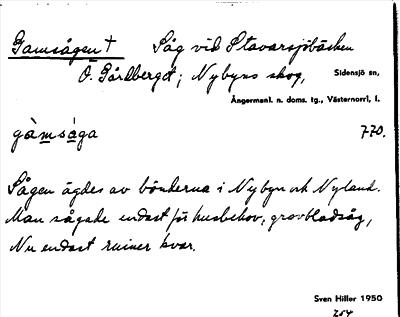 Gamsågen † Såg vid Stavarsjöbäcken
Ö. Gårdberget; Nybyns skog, Sidensjö sn,
Ångermanl. n. doms. tg., Västernorrl. l.
gàmsåga 770.
Sågen ägdes av bönderna i Nybyn och Nyland.
Man sågade endast för husbehov; grovbladsåg,
Nu endast ruiner kvar.
Sven Hiller 1950
254